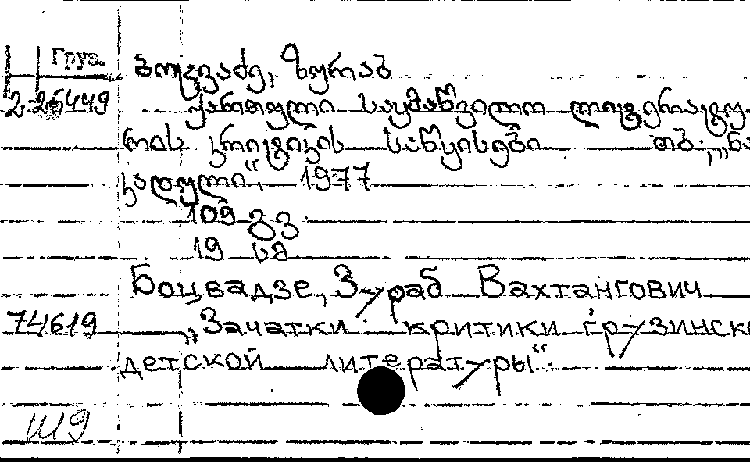 Груз.
ბოცვაძე, ზურაბ
2-25449
ქართული საყმაწვილო ლიტერატუ-
რის კრიტიკის საწყისები თბ., „ნა
კადული“, 1977
109 გვ
19 სმ
Боцвадзе, Зураб Вахтангович
74619
„Зачатки критики грузинско
детской литературы“
Ш9